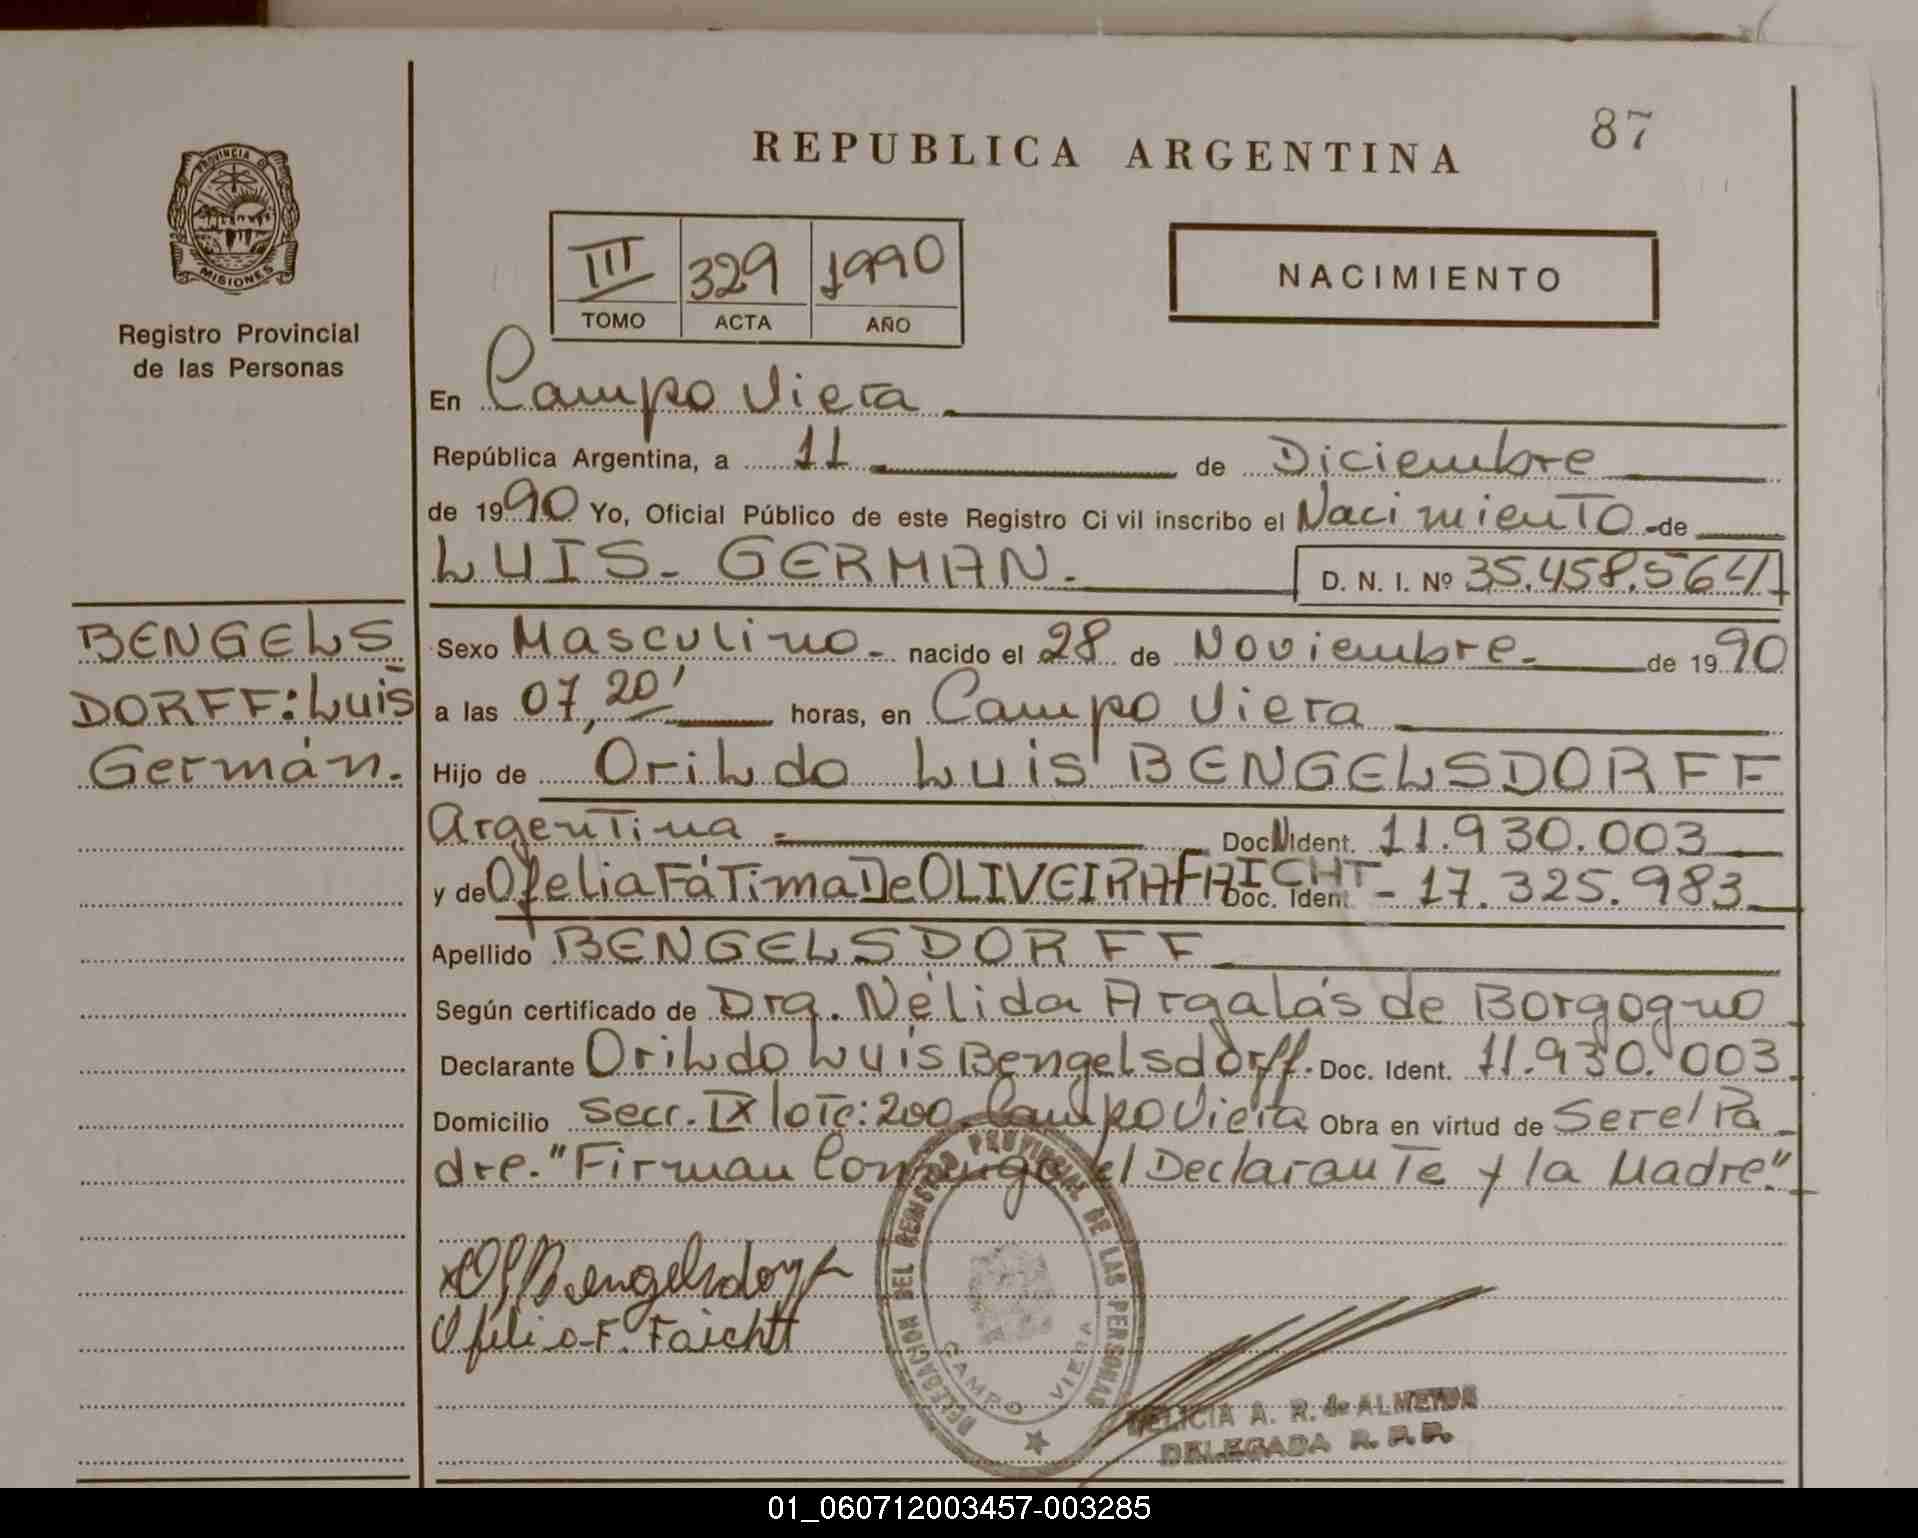 87
REPUBLICA ARGENTINA
PROVINCIA D
MISIONES
Registro Provincial
de las Personas
III 329 1990
TOMO ACTA AÑO
NACIMIENTO
En Campo Viera
República Argentina, a 11 de Diciembre
de 1990 Yo, Oficial Público de este Registro Civil inscribo el Nacimiento de
LUIS GERMAN. D. N. I. Nº 35.458.564
BENGELS
DORFF: Luis
Germán.
Sexo Masculino nacido el 28 de Noviembre de 1990
a las 07,20' horas, en Campo Viera
Hijo de Orildo Luis BENGELSDORFF
Argentina Doc. Ident. 11.930.003
y de Ofelia Fátima De OLIVEIRA FAICHT Doc. Ident. 17.325.983
Apellido BENGELSDORFF
Según certificado de Dra. Nélida Argalás de Borgogno
Declarante Orildo Luis Bengelsdorff. Doc. Ident. 11.930.003
Domicilio Secc. IX lote: 200 Campo Viera Obra en virtud de Ser el Pa
dre. "Firman Conmigo el Declarante y la Madre"
Bengelsdorff
Ofelia F. Faicht
DELEGACION DEL REGISTRO PROVINCIAL DE LAS PERSONAS
CAMPO VIERA
A. R. de ALMEIDA
DELEGADA R. P. P.
01_060712003457-003285